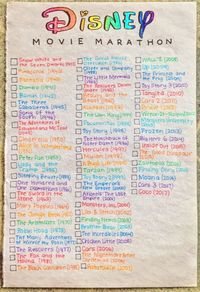 Disney
MOVIE MARATHON
Snow White and
the Seven Dwarfs (1937)
Pinocchio (1940)
Fantasia (1940)
Dumbo (1941)
Bambi (1942)
The Three
Caballeros (1945)
Song of the
South (1946)
The Adventures of
Ichabod and Mr Toad
Alice in Wonderland
Peter Pan (1953)
Lady and the
Tramp (1955)
Sleeping Beauty (1959)
One Hundred and
One Dalmatians (1961)
The Sword in the
Stone (1963)
Mary Poppins (1964)
The Jungle Book (1967)
The Aristocats (1970)
Robin Hood (1973)
The Many Adventures
of Winnie the Pooh (1977)
The Rescuers (1977)
The Fox and the
Hound (1981)
The Black Cauldron (1985)
The Great Mouse
Detective (1986)
Oliver and Company
(1988)
The Little Mermaid
(1989)
The Rescuers Down
Under (1990)
The Lion King (1994)
Pocahontas (1995)
Toy Story (1995)
The Hunchback of
Notre Dame (1996)
Hercules (1997)
Mulan (1998)
Tarzan (1999)
The Emperor's
New Groove (2000)
Atlantis: The Lost
Empire (2001)
Monsters, Inc. (2001)
Lilo & Stitch (2002)
Finding Nemo (2003)
Brother Bear (2003)
The Incredibles (2004)
Chicken Little (2005)
Cars (2006)
Ratatouille (2007)
WALL-E (2008)
Up (2009)
The Princess and
the Frog (2009)
Toy Story 3 (2010)
Tangled (2010)
Cars 2 (2011)
Brave (2012)
Wreck-It-Ralph (2012)
Frozen (2013)
Big Hero 6 (2014)
Inside Out (2015)
The Good Dinosaur
Finding Dory (2016)
Moana (2016)
Cars 3 (2017)
Coco (2017)